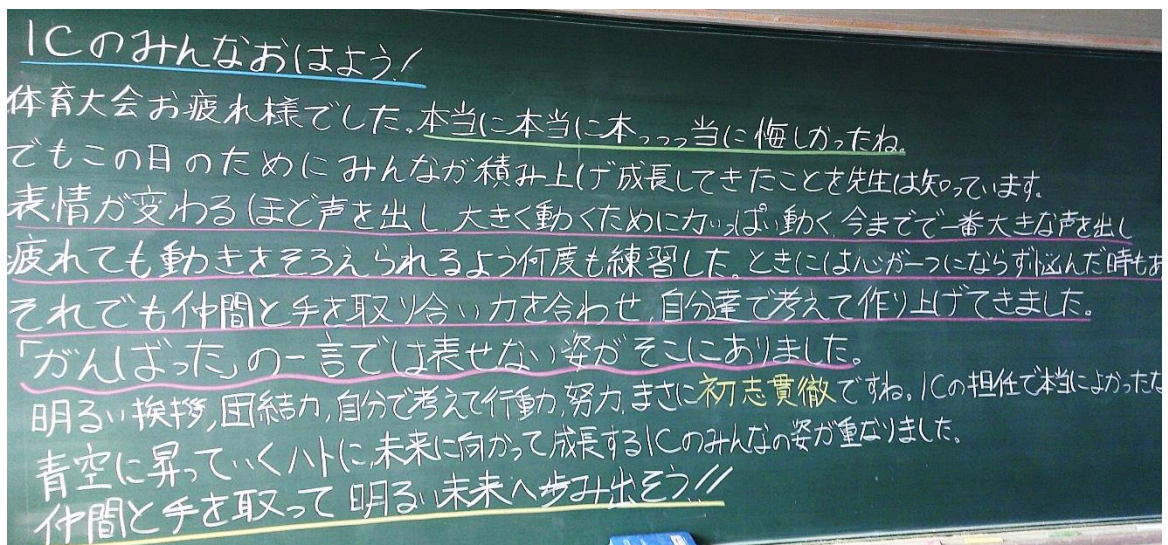 1Cのみんなおはよう!
体育大会お疲れ様でした。本当に本当に本っっっ当に悔しかったね。
でもこの日のためにみんなが積み上げ成長してきたことを先生は知っています。
表情が変わるほど声を出し、大きく動くために力いっぱい動く、今までで一番大きな声を出し
疲れても動きをそろえられるよう何度も練習した。ときには心が一つにならず悩んだ時もあ
それでも仲間と手を取り合い力を合わせ、自分達で考えて作り上げてきました。
「がんばった」の一言では表せない姿がそこにありました。
明るい挨拶,団結力,自分で考えて行動,努力,まさに初志貫徹ですね。1Cの担任で本当によかったな
青空に昇っていくハトに、未来に向かって成長する1Cのみんなの姿が重なりました。
仲間と手を取って明るい未来へ歩み出そう!!